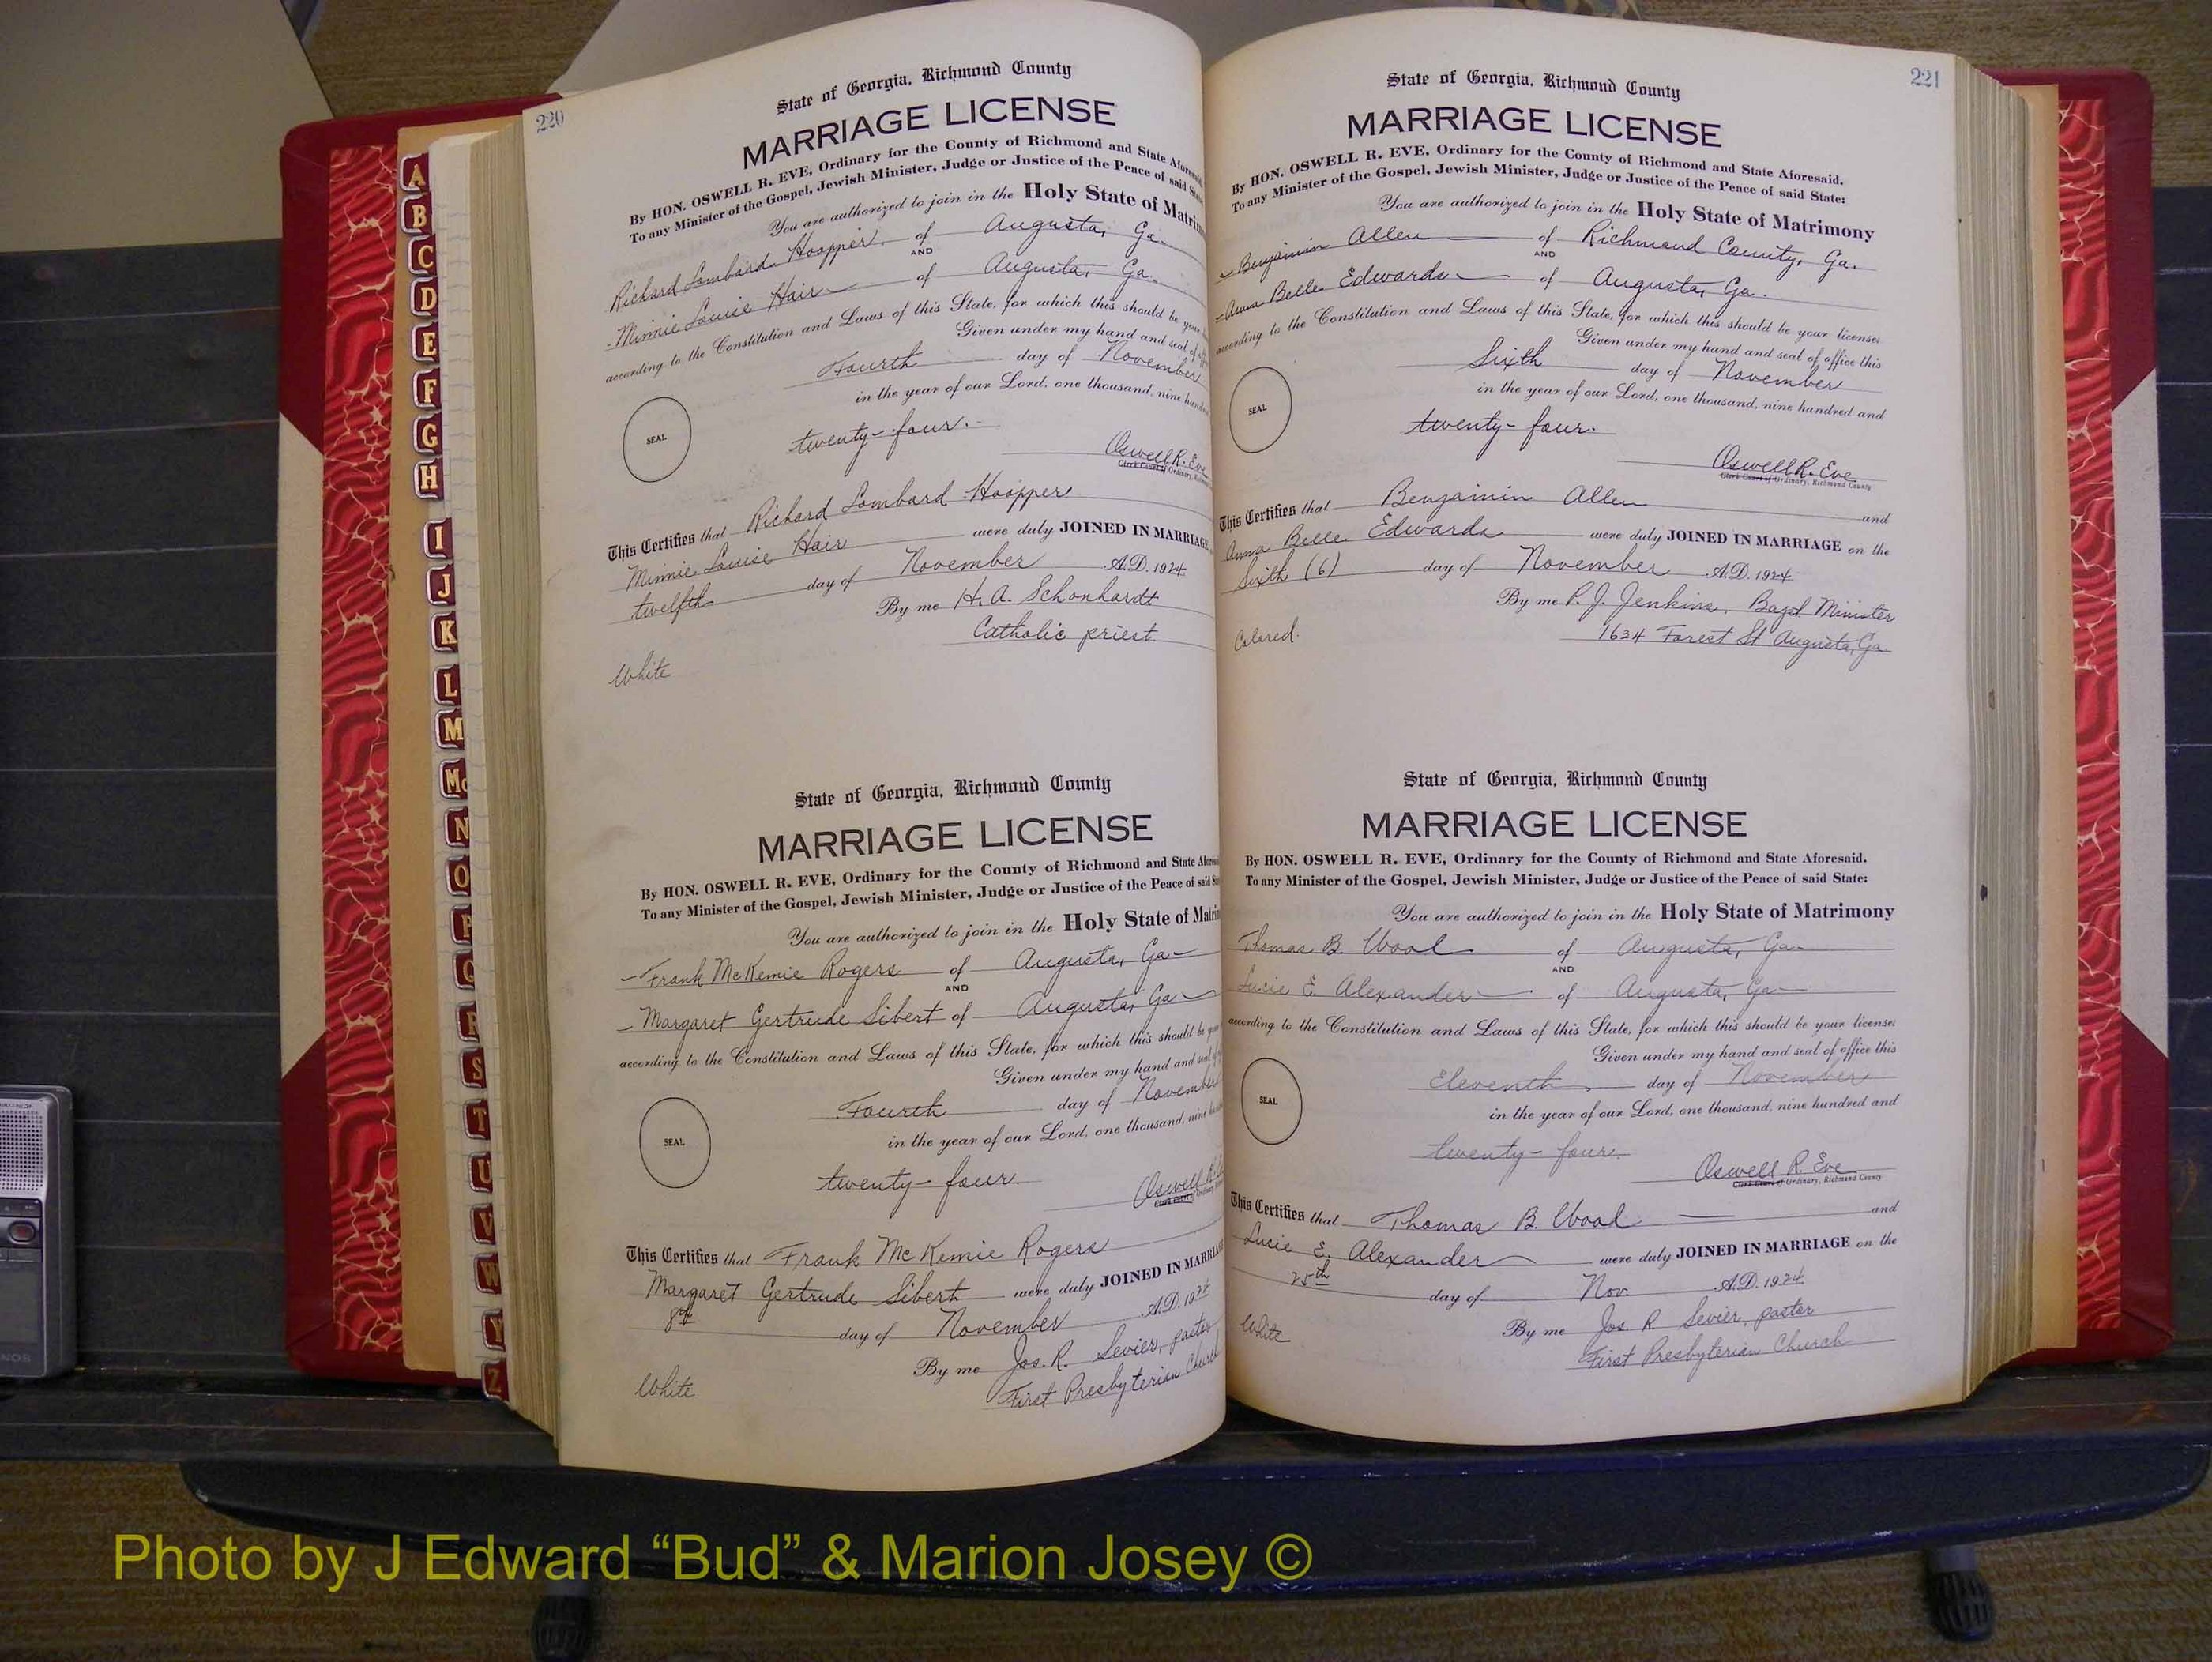 220
State of Georgia, Richmond County
MARRIAGE LICENSE
By HON. OSWELL R. EVE, Ordinary for the County of Richmond and State Afores
To any Minister of the Gospel, Jewish Minister, Judge or Justice of the Peace of said St
You are authorized to join in the Holy State of Matrim
Richard Lombard Hoopper of Augusta, Ga.
AND
Minnie Louise Hair of Augusta, Ga.
according to the Constitution and Laws of this State, for which this should be your
Given under my hand and seal of
Fourth day of November
in the year of our Lord, one thousand, nine hund
SEAL
twenty-four.
Oswell R. Eve
Clerk Court of Ordinary,
This Certifies that Richard Lombard Hoopper
Minnie Louise Hair were duly JOINED IN MARRIAGE
twelfth day of November A.D. 1924
By me H. A. Schonhardt
Catholic priest.
White
State of Georgia, Richmond County
MARRIAGE LICENSE
By HON. OSWELL R. EVE, Ordinary for the County of Richmond and State Afores
To any Minister of the Gospel, Jewish Minister, Judge or Justice of the Peace of said St
You are authorized to join in the Holy State of Matrim
Frank McKemie Rogers of Augusta, Ga
AND
Margaret Gertrude Sibert of Augusta, Ga
according to the Constitution and Laws of this State, for which this should be your
Given under my hand and seal of
Fourth day of November
in the year of our Lord, one thousand, nine
SEAL
twenty-four.
Oswell R.
Clerk Court of Ordinary
This Certifies that Frank McKemie Rogers
Margaret Gertrude Sibert were duly JOINED IN MARRIAGE
8th day of November A.D. 1924
By me Jos. R. Sevier, pastor
First Presbyterian Church
White
221
State of Georgia, Richmond County
MARRIAGE LICENSE
By HON. OSWELL R. EVE, Ordinary for the County of Richmond and State Aforesaid.
To any Minister of the Gospel, Jewish Minister, Judge or Justice of the Peace of said State:
You are authorized to join in the Holy State of Matrimony
Benjamin Allen of Richmond County, Ga.
AND
Anna Belle Edwards of Augusta, Ga.
according to the Constitution and Laws of this State, for which this should be your licenses
Given under my hand and seal of office this
Sixth day of November
in the year of our Lord, one thousand, nine hundred and
SEAL
twenty-four.
Oswell R. Eve
Clerk Court of Ordinary, Richmond County
This Certifies that Benjamin Allen and
Anna Belle Edwards were duly JOINED IN MARRIAGE on the
Sixth (6) day of November A.D. 1924
By me P. J. Jenkins, Bapt Minister
1634 Forest St Augusta, Ga.
Colored.
State of Georgia, Richmond County
MARRIAGE LICENSE
By HON. OSWELL R. EVE, Ordinary for the County of Richmond and State Aforesaid.
To any Minister of the Gospel, Jewish Minister, Judge or Justice of the Peace of said State:
You are authorized to join in the Holy State of Matrimony
Thomas B. Wool of Augusta, Ga
AND
Lucie E. Alexander of Augusta, Ga
according to the Constitution and Laws of this State, for which this should be your licenses
Given under my hand and seal of office this
Eleventh day of November
in the year of our Lord, one thousand, nine hundred and
SEAL
twenty-four.
Oswell R. Eve
Clerk Court of Ordinary, Richmond County
This Certifies that Thomas B. Wool and
Lucie E. Alexander were duly JOINED IN MARRIAGE on the
25th day of Nov. A.D. 1924
By me Jos. R. Sevier, pastor
First Presbyterian Church
White
A
B
C
D
E
F
G
H
I
J
K
L
M
Mc
N
O
P
Q
R
S
T
U
V
W
Y
Z
Photo by J Edward “Bud” & Marion Josey ©